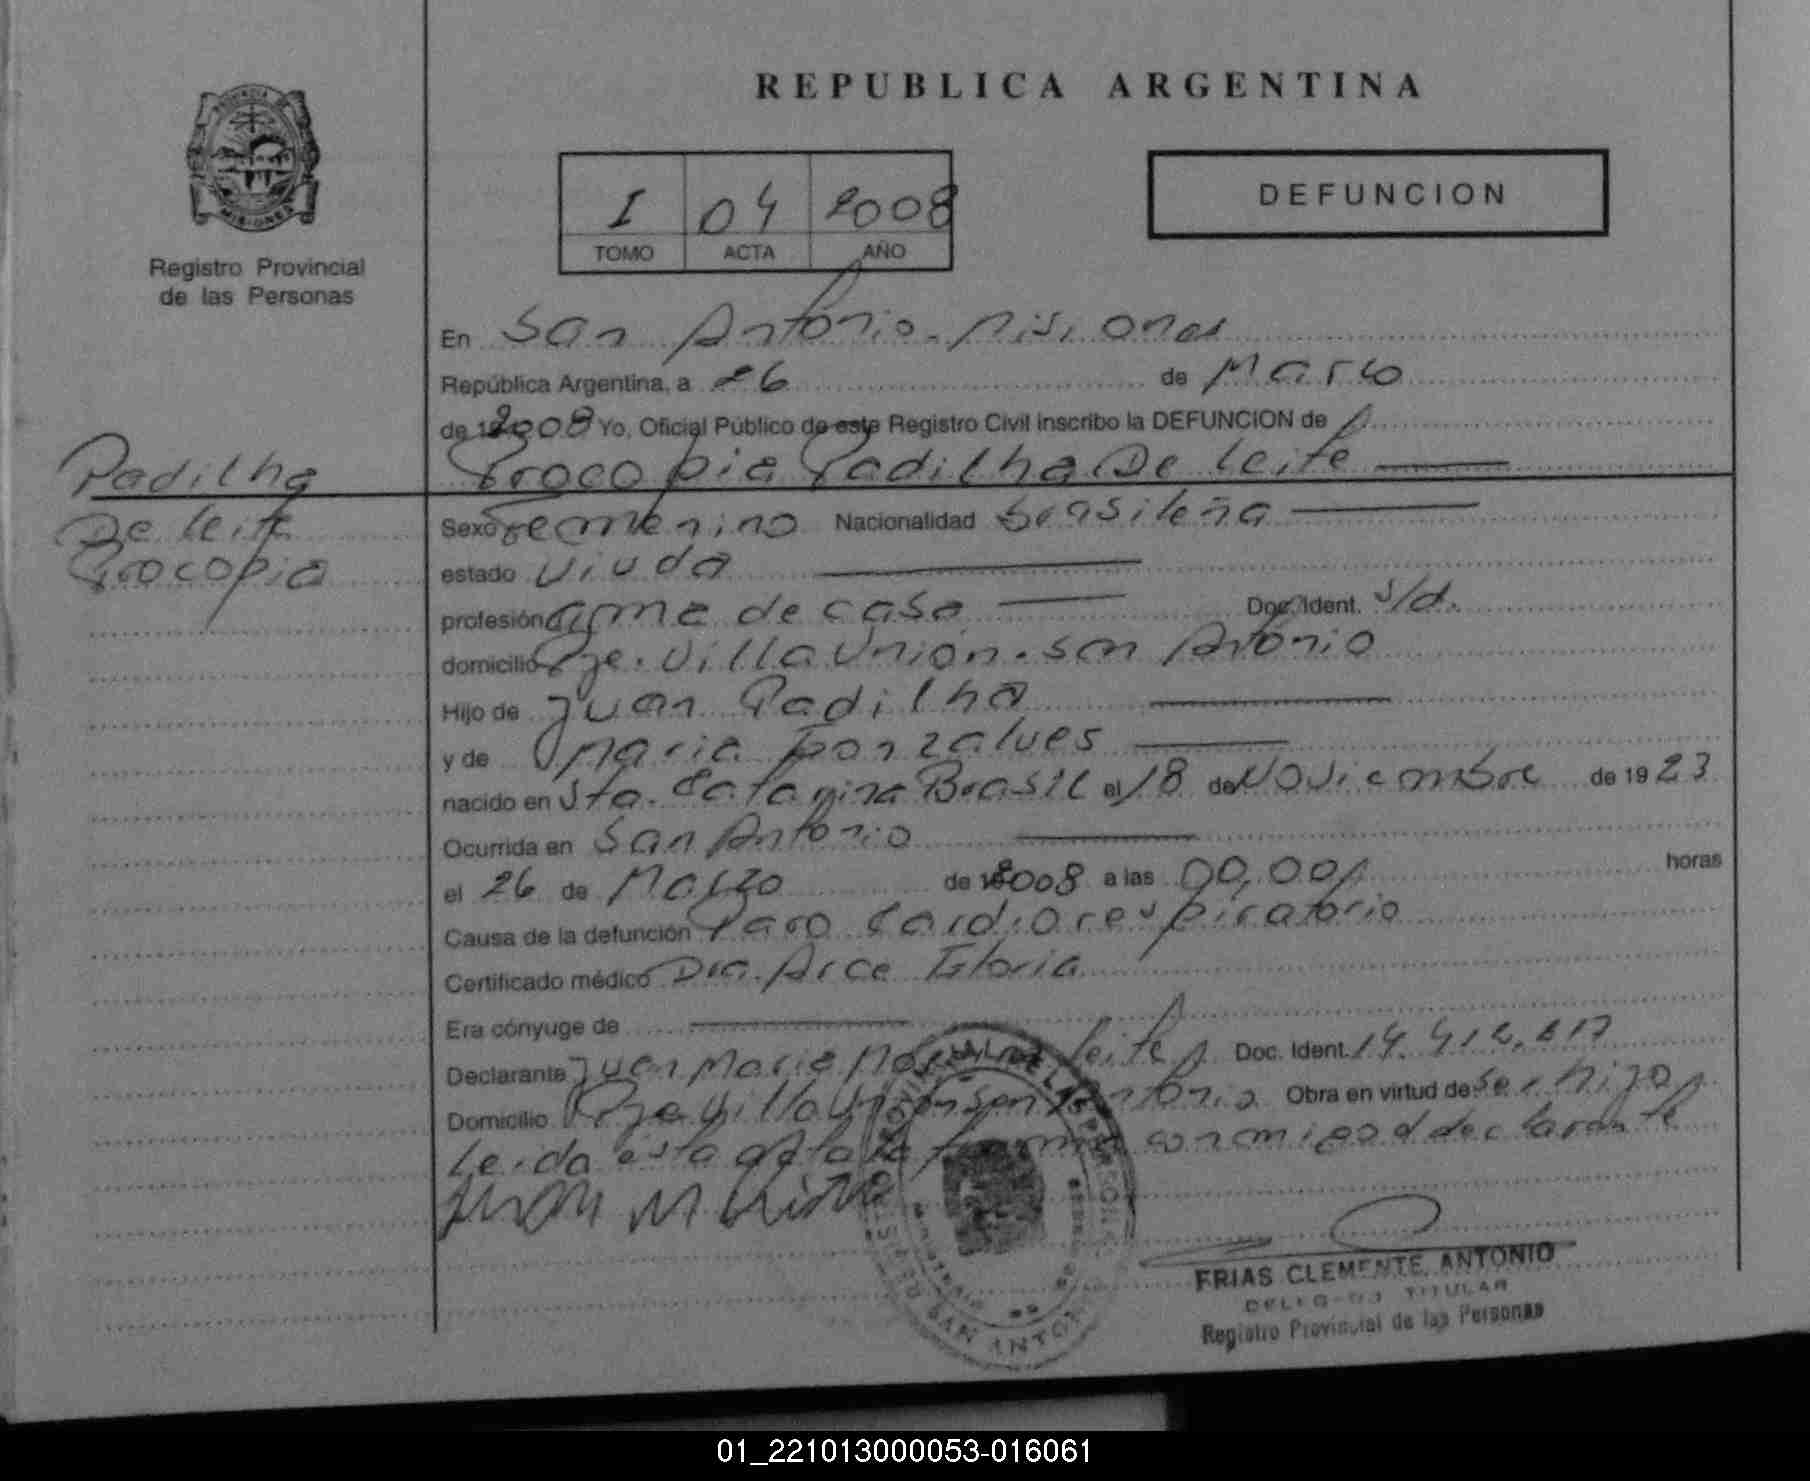 REPUBLICA ARGENTINA
PROVINCIA DE
MISIONES
Registro Provincial
de las Personas
I 04 2008
TOMO ACTA AÑO
DEFUNCION
En San Antonio. Misiones
República Argentina, a 26 de Marzo
de 2008 Yo, Oficial Público de este Registro Civil inscribo la DEFUNCION de
Procopia Padilha De leite
Padilha
De leite
Procopia
Sexo Femenino Nacionalidad brasileña
estado Viuda
profesión ama de casa Doc. Ident. s/d.
domicilio Pje. Villa Unión. San Antonio
Hijo de Juan Padilha
y de Maria Gonzalves
nacido en Sta. Catarina Brasil el 18 de Noviembre de 1923
Ocurrida en San Antonio
el 26 de Marzo de 2008 a las 00,00 horas
Causa de la defunción Paro Cardiorespiratorio
Certificado médico Dra. Arce
Era cónyuge de
Declarante Juan Maria leite Doc. Ident. 14.412.617
Domicilio Pje Villa Unión San Antonio Obra en virtud de ser hijo
Leida esta acta la firma conmigo el declarante
FRIAS CLEMENTE ANTONIO
DELEGADO TITULAR
Registro Provincial de las Personas
SAN ANTONIO
01_221013000053-016061